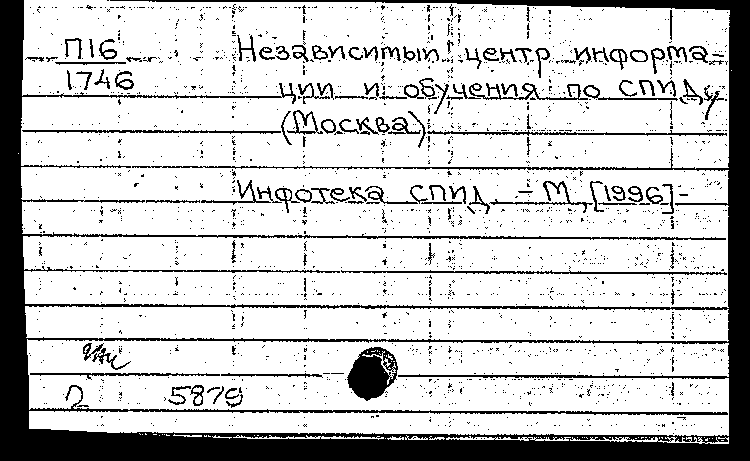 П16
1746
Независимый центр информа-
ции и обучения по СПИДу
(Москва)
Инфотека СПИД. - М., [1996]-
2 5879